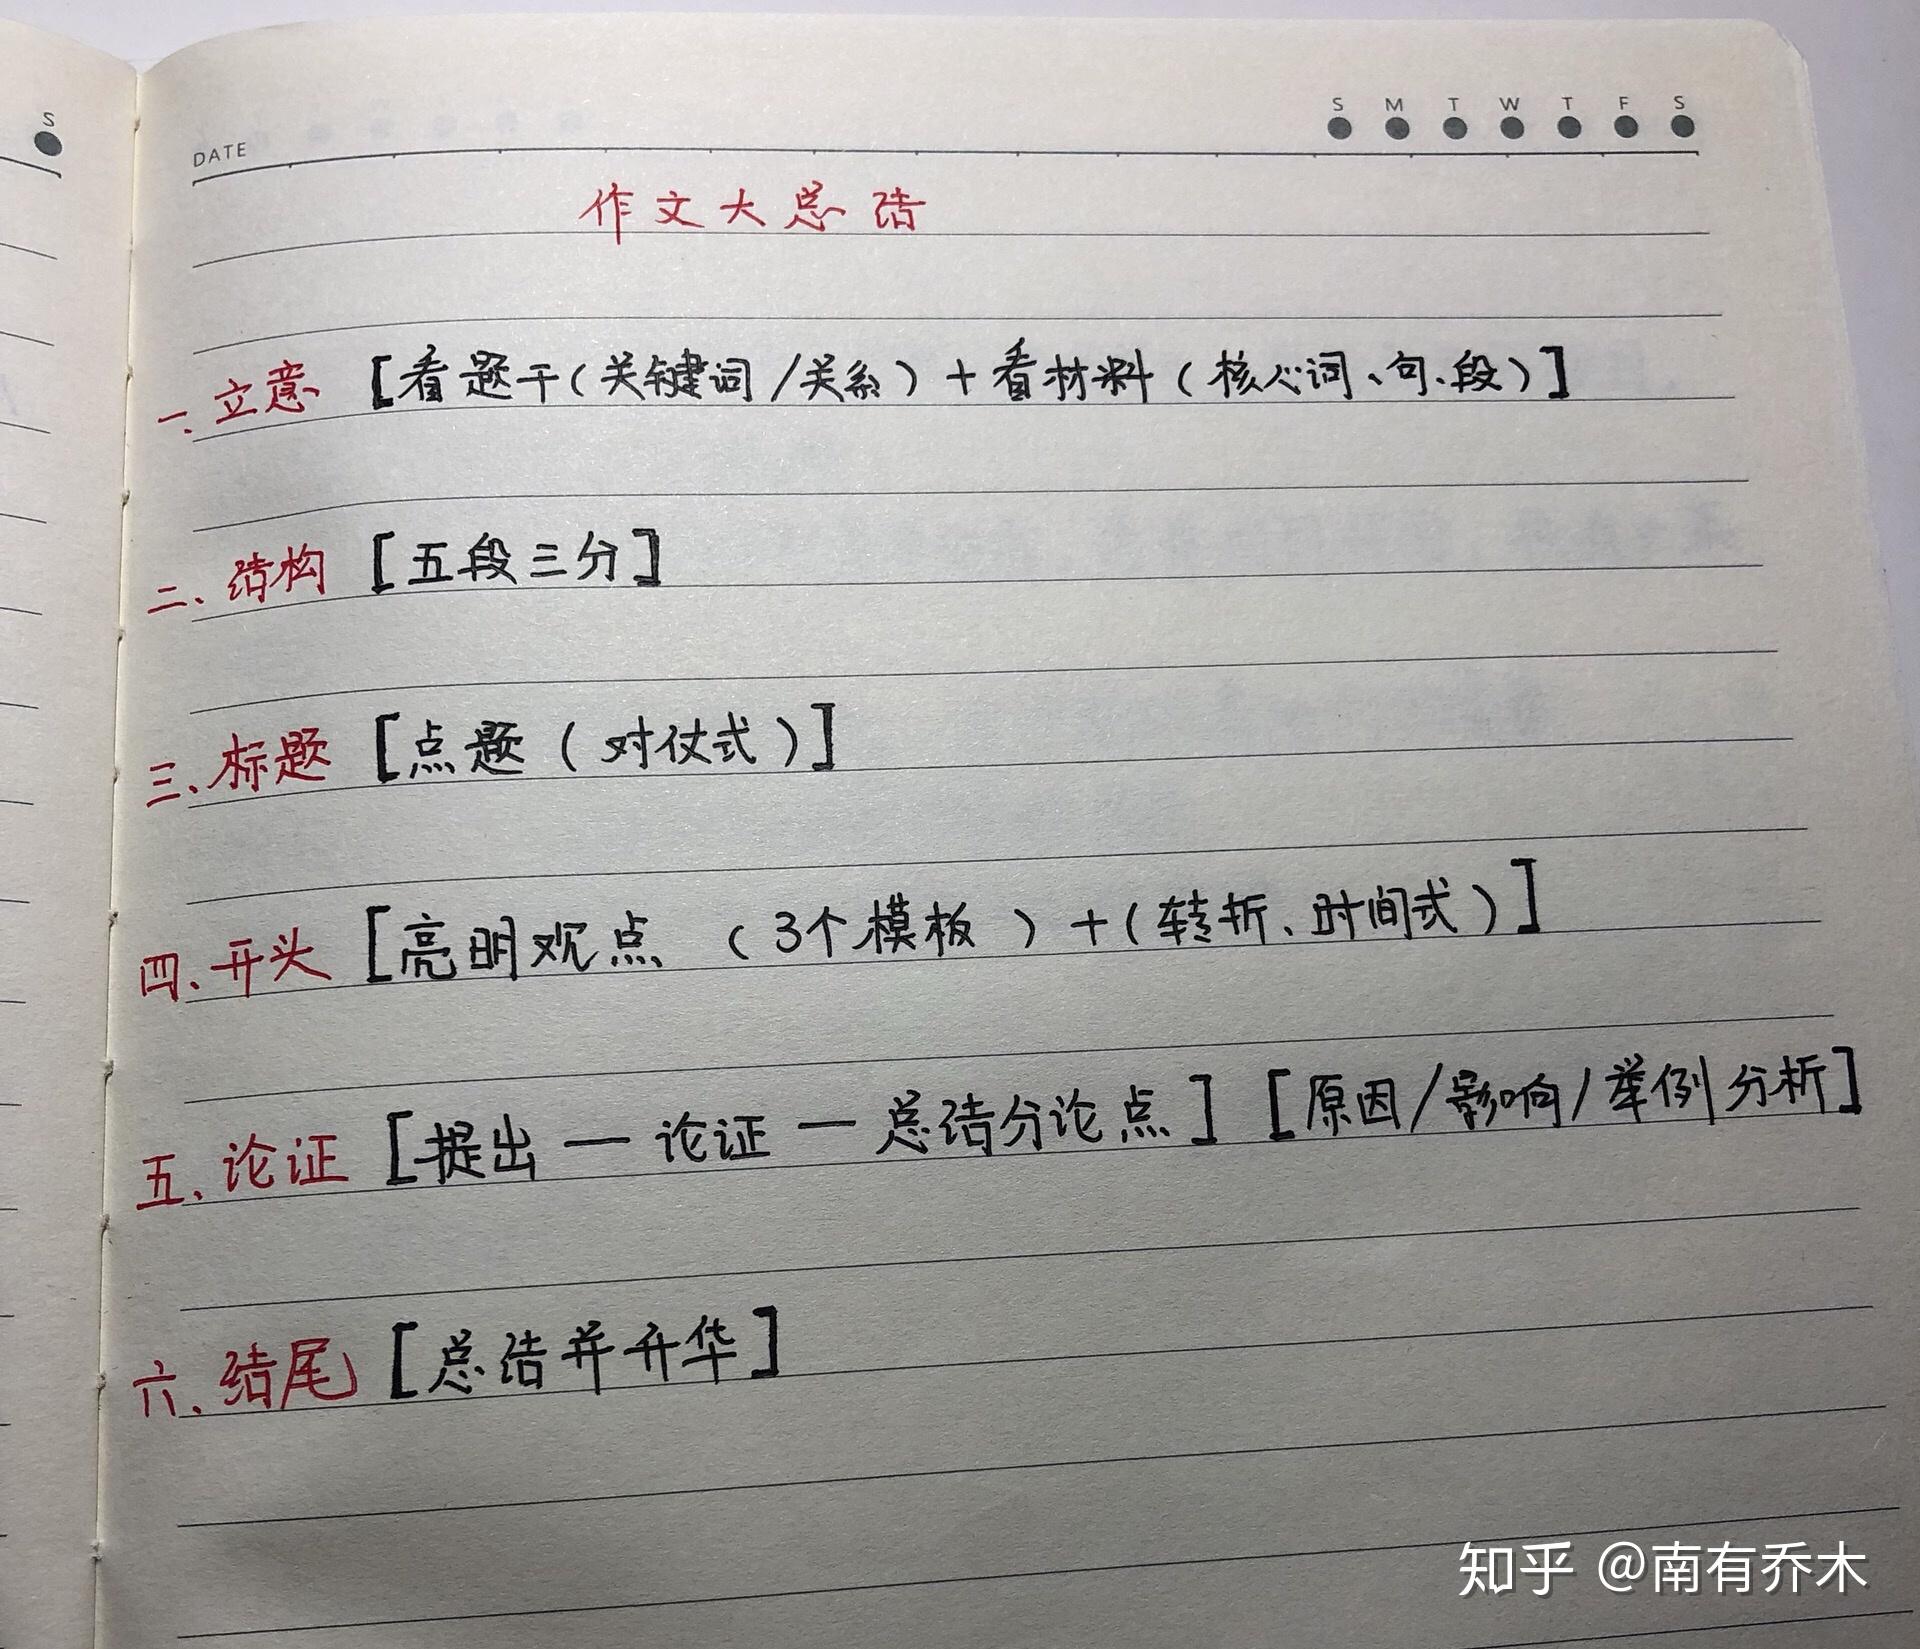 S
DATE
S M T W T F S
作文大总结
一、立意 [看题干(关键词/关系)+看材料(核心词、句、段)]
二、结构 [五段三分]
三、标题 [点题(对仗式)]
四、开头 [亮明观点(3个模板)+(转折、时间式)]
五、论证 [提出—论证—总结分论点] [原因/影响/举例分析]
六、结尾 [总结并升华]
知乎 @南有乔木